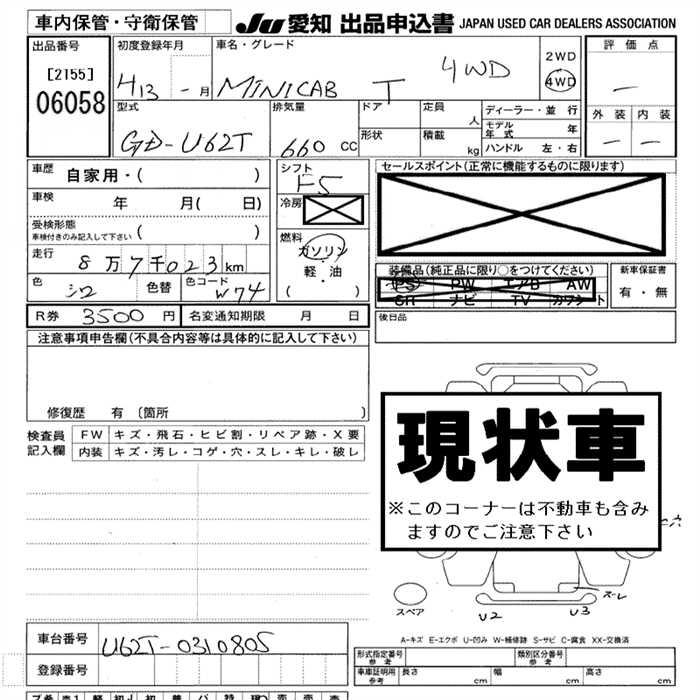 車内保管・守衛保管
JU 愛知 出品申込書 JAPAN USED CAR DEALERS ASSOCIATION
出品番号
[2155]
06058
初度登録年月
H13 - 月
車名・グレード
MINICAB T 4WD
2WD
4WD
評価点
—
外装 内装
— —
型式
GD-U62T
排気量
660 CC
ドア
形状
定員 人
積載 kg
ディーラー・並行
モデル年式 年
ハンドル 左・右
車歴 自家用・( )
車検 年 月( 日)
受検形態
車検付きのみ記入して下さい ( )
走行 8万7千023km
色 シロ 色替 色コード W74
シフト
F5
冷房
燃料
ガソリン
・軽・油
( )
セールスポイント(正常に機能するものに限ります)
装備品(純正品に限り○をつけてください)
PS PW エアB AW
SR ナビ TV カワシート
新車保証書
有・無
R券 3500円 名変通知期限 月 日
後日品
注意事項申告欄(不具合内容等は具体的に記入して下さい)
修復歴 有 〔箇所 〕
検査員記入欄
FW キズ・飛石・ヒビ割・リペア跡・X要
内装 キズ・汚レ・コゲ・穴・スレ・キレ・破レ
現状車
※このコーナーは不動車も含み
ますのでご注意下さい
穴
スペア
U2
U3
スレ
A-キズ E-エクボ U-凹み W-補修跡 S-サビ C-腐食 XX-交換済
車台番号 U62T-0310805
登録番号
形式指定番号 参考
類別区分番号 参考
車庫証明用 参考 長さ cm 幅 cm 高さ cm